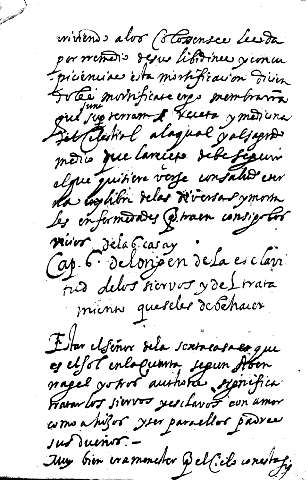 viviendo a los Colosenses le da da
por rremedio de sus libidines y concu
piciencias esta mortificacion dicien
doles mortificate ergo membra vra
que sunt super terram receta y mediçina
del celestial a la qual y al sagrado
medico que la rreceto debe seguir
el que quisiere verse con salud eter
na y libre de las diversas y morta
les enfermedades q traen consigo los
vicios de la 6 casa y
Cap. 6. del origen de la esclavi
tud de los siervos y del trata
miento que se les debe haçer
Estar el señor de la sexta casa que
es el sol en la quarta segun Aben
ragel y otros authores significa
tratar los siervos y esclavos con amor
como a hijos y ser para ellos padres
sus dueños.—
Muy bien era menester q el Cielo con estas